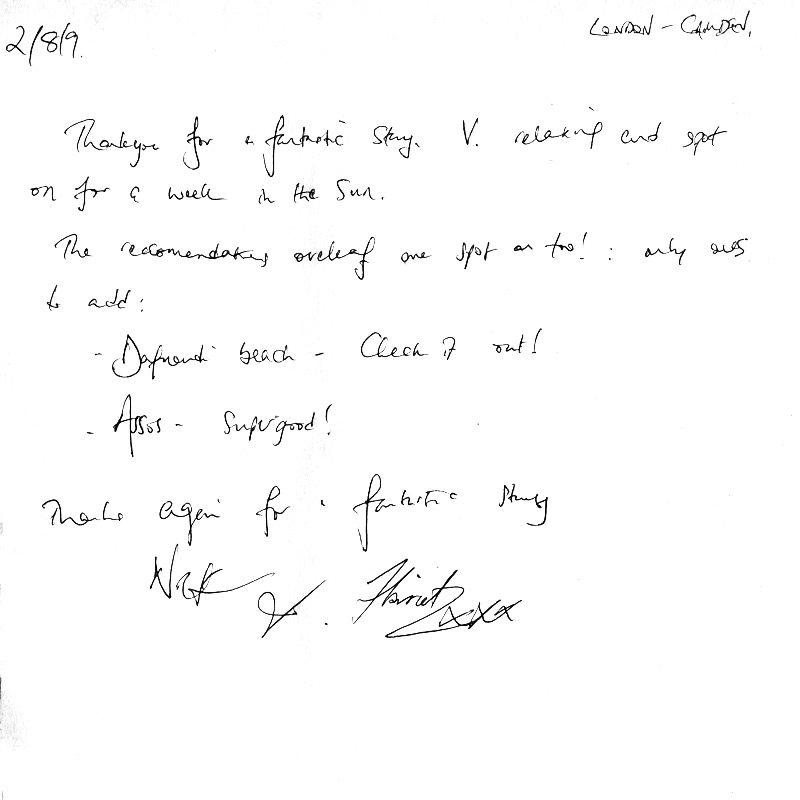 2/8/9.
LONDON - CAMDEN.
Thankyou for a fantastic stay. V. relaxing and spot
on for a week in the Sun.
The reccomendations overleaf are spot on too! : only ones
to add:
- Dafnoudi beach - Check it out!
- Assos - Supergood!
Thanks again for a fantastic stay
Nick & Harriet xxx